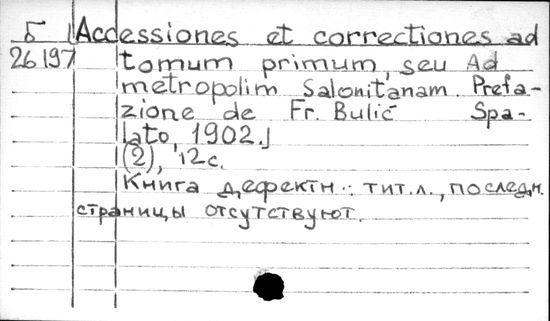 Б [Accessiones et correctiones ad
26197 tomum primum, seu Ad
metropolim Salonitanam. Prefa-
zione de Fr. Bulić Spa-
lato, 1902.]
(2), 12 с.
Книга дефектн.: тит.л., последн.
страницы отсутствуют.